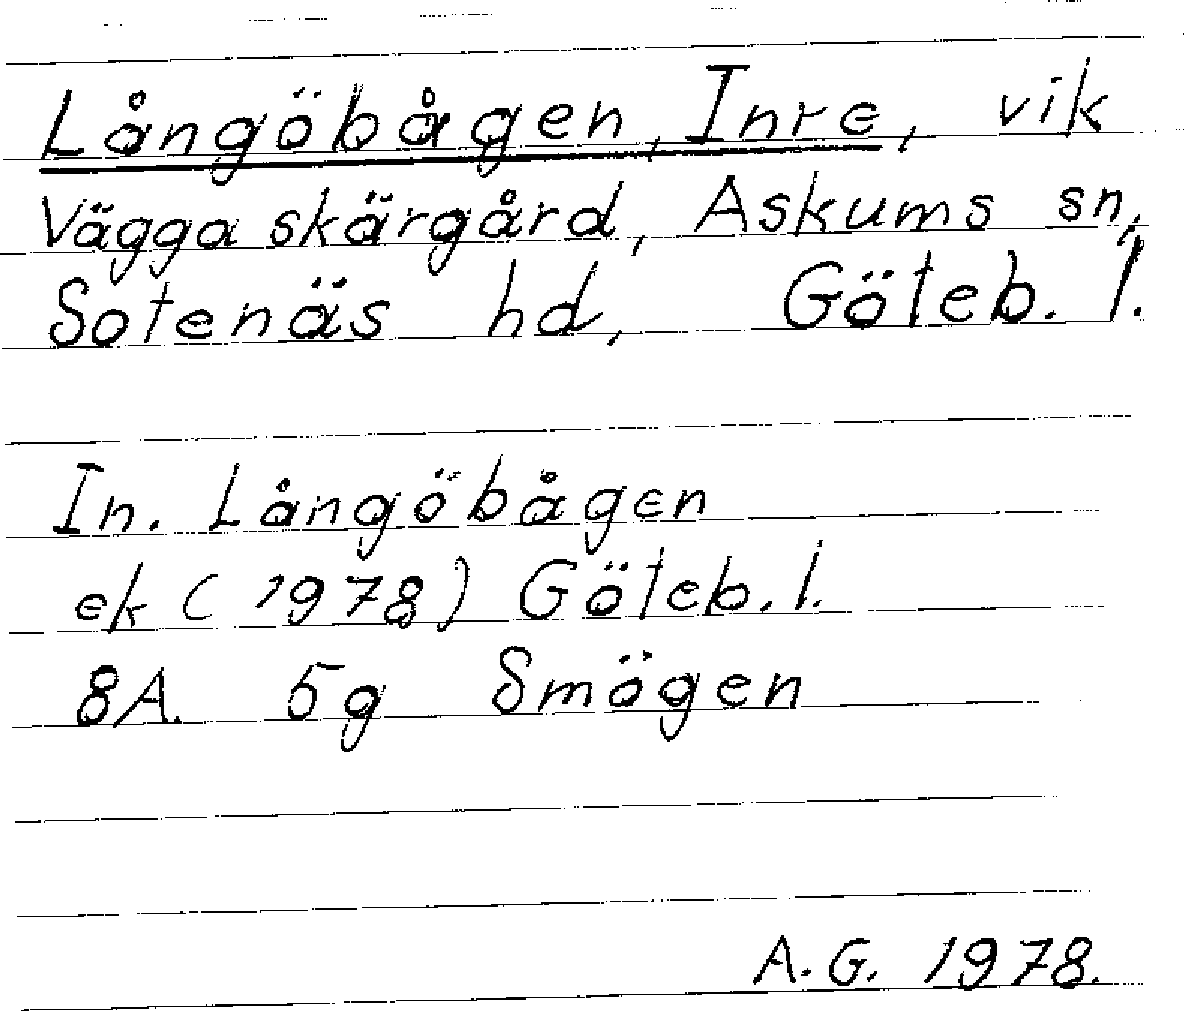 Långöbågen, Inre, vik
Vägga skärgård, Askums sn,
Sotenäs hd, Göteb. l.
In. Långöbågen
ek (1978) Göteb. l.
8A. 5g Smögen
A.G. 1978.